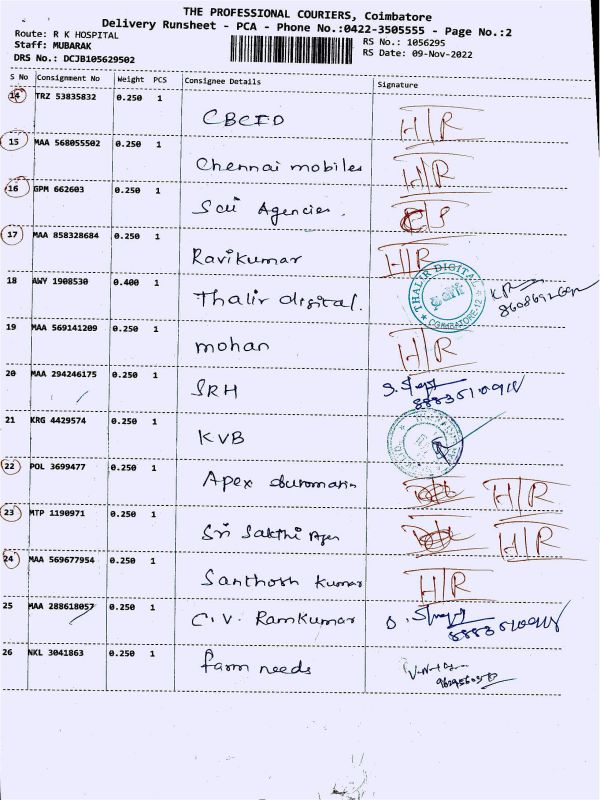 THE PROFESSIONAL COURIERS, Coimbatore
Delivery Runsheet - PCA - Phone No.:0422-3505555 - Page No.:2
Route: R K HOSPITAL
Staff: MUBARAK
DRS No.: DCJB105629502
RS No.: 1056295
RS Date: 09-Nov-2022
S No Consignment No Weight PCS Consignee Details Signature
14 TRZ 53835832 0.250 1
CBCID H/R
15 MAA 568055502 0.250 1
Chennai mobiles H/R
16 GPM 662603 0.250 1
Sai Agencies.
17 MAA 858328684 0.250 1
Ravikumar H/R
18 AWY 1908530 0.400 1
Thalir digital. THALIR DIGITAL COIMBATORE-12
19 MAA 569141209 0.250 1
mohan H/R
20 MAA 294246175 0.250 1
SRH
21 KRG 4429574 0.250 1
KVB
22 POL 3699477 0.250 1
Apex H/R
23 MTP 1190971 0.250 1
Sri Sakthi H/R
24 MAA 569677954 0.250 1
Santhosh Kumar H/R
25 MAA 288618057 0.250 1
C.V. Ramkumar
26 NKL 3041863 0.250 1
farm needs